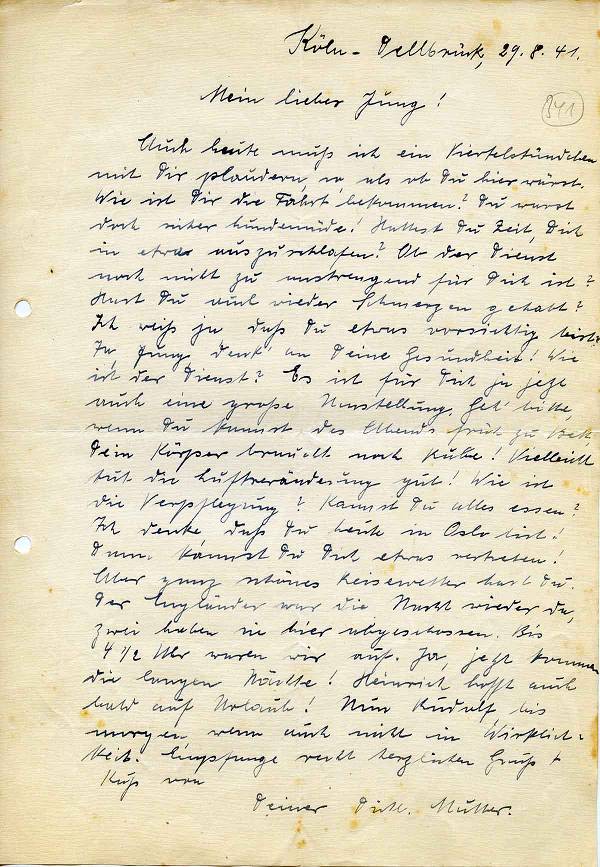 Köln-Dellbrück, 29.8.41.
Mein lieber Jung!
341
Auch heute muß ich ein Viertelstündchen
mit Dir plaudern, so, als ob Du hier wärst.
Wie ist Dir die Fahrt bekommen? Du warst
doch sicher hundemüde! Hattest Du Zeit, Dich
in etwas auszuschlafen? Ob der Dienst
noch nicht zu anstrengend für Dich ist?
Hast Du auch wieder Schmerzen gehabt?
Ich weiß ja daß Du etwas vorsichtig bist.
Ja, Jung, denk' an Deine Gesundheit! Wie
ist der Dienst? Es ist für Dich ja jetzt
auch eine große Umstellung. Geh' bitte,
wenn Du kannst des Abends früh zu Bett,
Dein Körper braucht noch Ruhe! Vielleicht
tut die Luftveränderung gut! Wie ist
die Verpflegung? Kannst Du alles essen?
Ich denke daß Du heute in Oslo bist!
Dann kannst Du Dich etwas vertreten!
Aber ganz schönes Reisewetter hast Du.
Der Engländer war die Nacht wieder da,
zwei haben sie hier abgeschossen. Bis
4 1/2 Uhr waren wir auf. Ja, jetzt kommen
die langen Nächte! Heinrich hofft auch
bald auf Urlaub! Nun Rudolf bis
morgen wenn auch nicht in Wirklich=
keit. Empfange recht herzlichen Gruß +
Kuß von
Deiner Mutter.